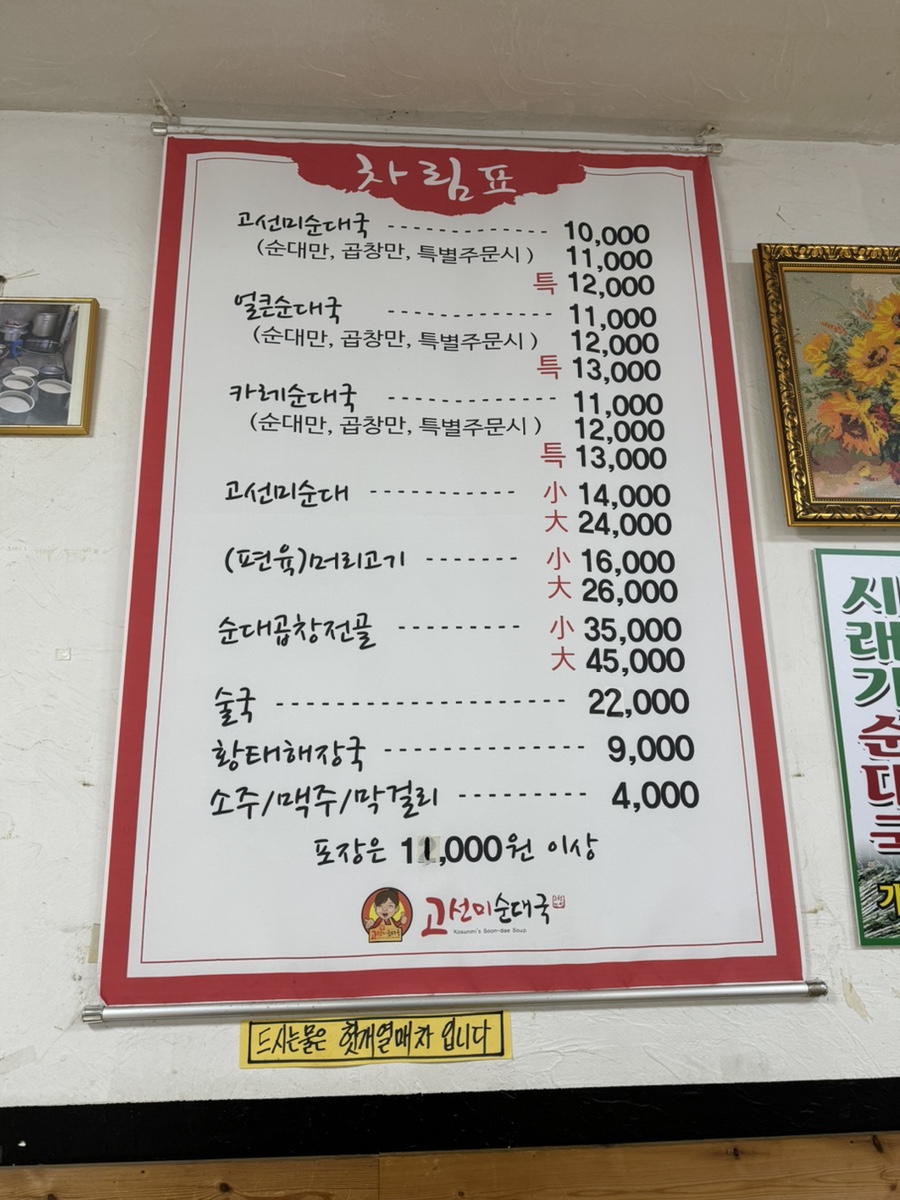 차림표
고선미순대국 ------------- 10,000
(순대만, 곱창만, 특별주문시) 11,000
특 12,000
얼큰순대국 ------------- 11,000
(순대만, 곱창만, 특별주문시) 12,000
특 13,000
카레순대국 ------------- 11,000
(순대만, 곱창만, 특별주문시) 12,000
특 13,000
고선미순대 ----------- 小 14,000
大 24,000
(편육)머리고기 ------- 小 16,000
大 26,000
순대곱창전골 --------- 小 35,000
大 45,000
술국 --------------------- 22,000
황태해장국 --------------- 9,000
소주/맥주/막걸리 --------- 4,000
포장은 11,000원 이상
고선미순대국
Kosunmi's Soon-dae Soup
드시는물은 헛개열매차 입니다
시래기
순대국